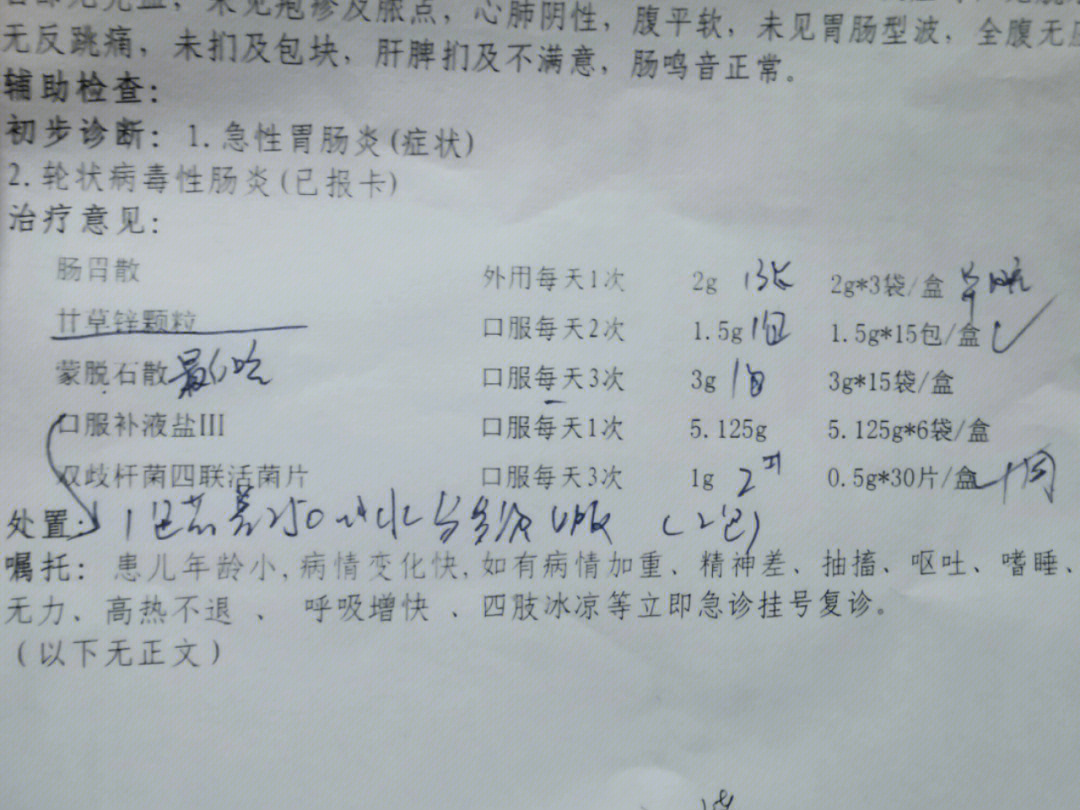 未见疱疹及脓点，心肺阴性，腹平软，未见胃肠型波，全腹无压
无反跳痛，未扪及包块，肝脾扪及不满意，肠鸣音正常。
辅助检查：
初步诊断：1.急性胃肠炎(症状)
2.轮状病毒性肠炎(已报卡)
治疗意见：
肠胃散 外用每天1次 2g 2g*3袋/盒
甘草锌颗粒 口服每天2次 1.5g 1包 1.5g*15包/盒
蒙脱石散 口服每天3次 3g 1包 3g*15袋/盒
口服补液盐III 口服每天1次 5.125g 5.125g*6袋/盒
双歧杆菌四联活菌片 口服每天3次 1g 2片 0.5g*30片/盒
处置： 1包 250ml水 (2包)
嘱托：患儿年龄小,病情变化快,如有病情加重、精神差、抽搐、呕吐、嗜睡、
无力、高热不退 、 呼吸增快 、四肢冰凉等立即急诊挂号复诊。
（以下无正文）